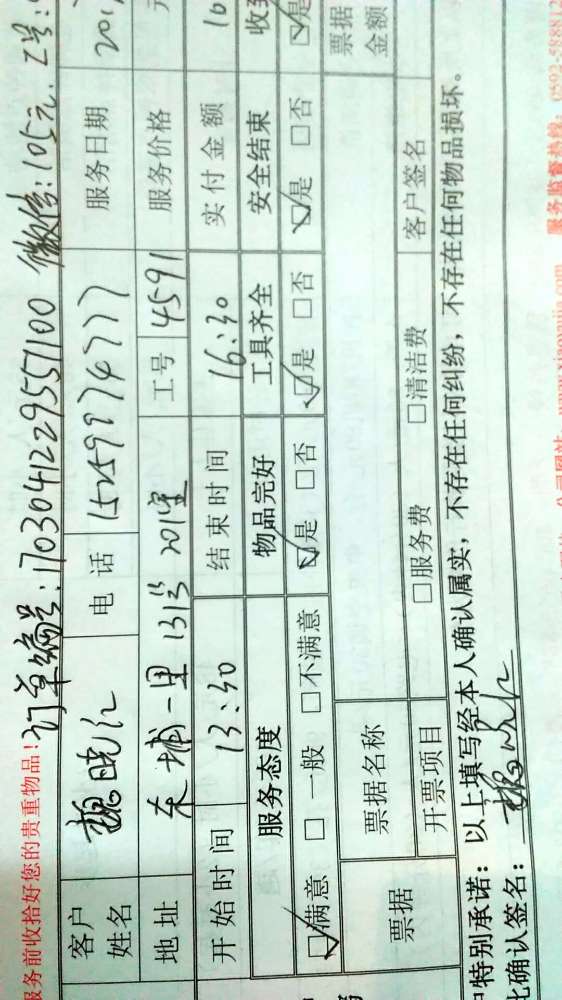 服务前收拾好您的贵重物品!
订单编号:1703041229557100 微信:105元. 工号:
客户姓名 魏晓红 电话 15259974777 服务日期 201
地址 东埔一里131号201室 工号 4591 服务价格 元
开始时间 13:30 结束时间 16:30 实付金额 10
服务态度 物品完好 工具齐全 安全结束 收到
☑满意 □一般 □不满意 ☑是 □否 ☑是 □否 ☑是 □否 ☑是
票据 票据名称 票据金额
开票项目 □服务费 □清洁费 客户签名
特别承诺:以上填写经本人确认属实,不存在任何纠纷,不存在任何物品损坏。
此确认签名:魏晓红
公司网站: 服务监督热线:0592-588812